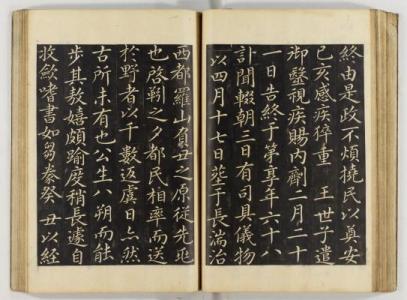 終由是政不煩撓民以奠安
己亥感疾猝重 王世子遣
御醫視疾賜內劑二月二十
一日告終于第享年六十八
訃聞輟朝三日有司具儀物
以四月十七日葬于長湍治
西都羅山負丑之原從先兆
也啓靷之夕都民相率而送
於野者以千數返虞日亦然
古所未有也公生八朔而能
步其敖嬉頗踰度稍長遽自
收斂嗜書如芻豢癸丑以經